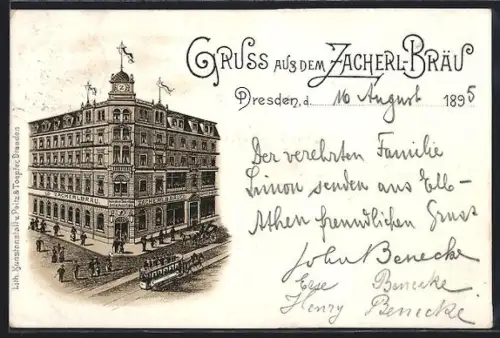 Gruss aus dem Zacherl-Bräu
Dresden, d. 10 August 1895
Der verehrten Familie
Simon senden aus Elb-
Athen freundlichen Gruss
John Benecke
Benecke
Henry Benecke
ZACHERLBRÄU
ZACHERLBRÄU
Lith. Kunstanstalt v. Peitz & Toepfer, Dresden